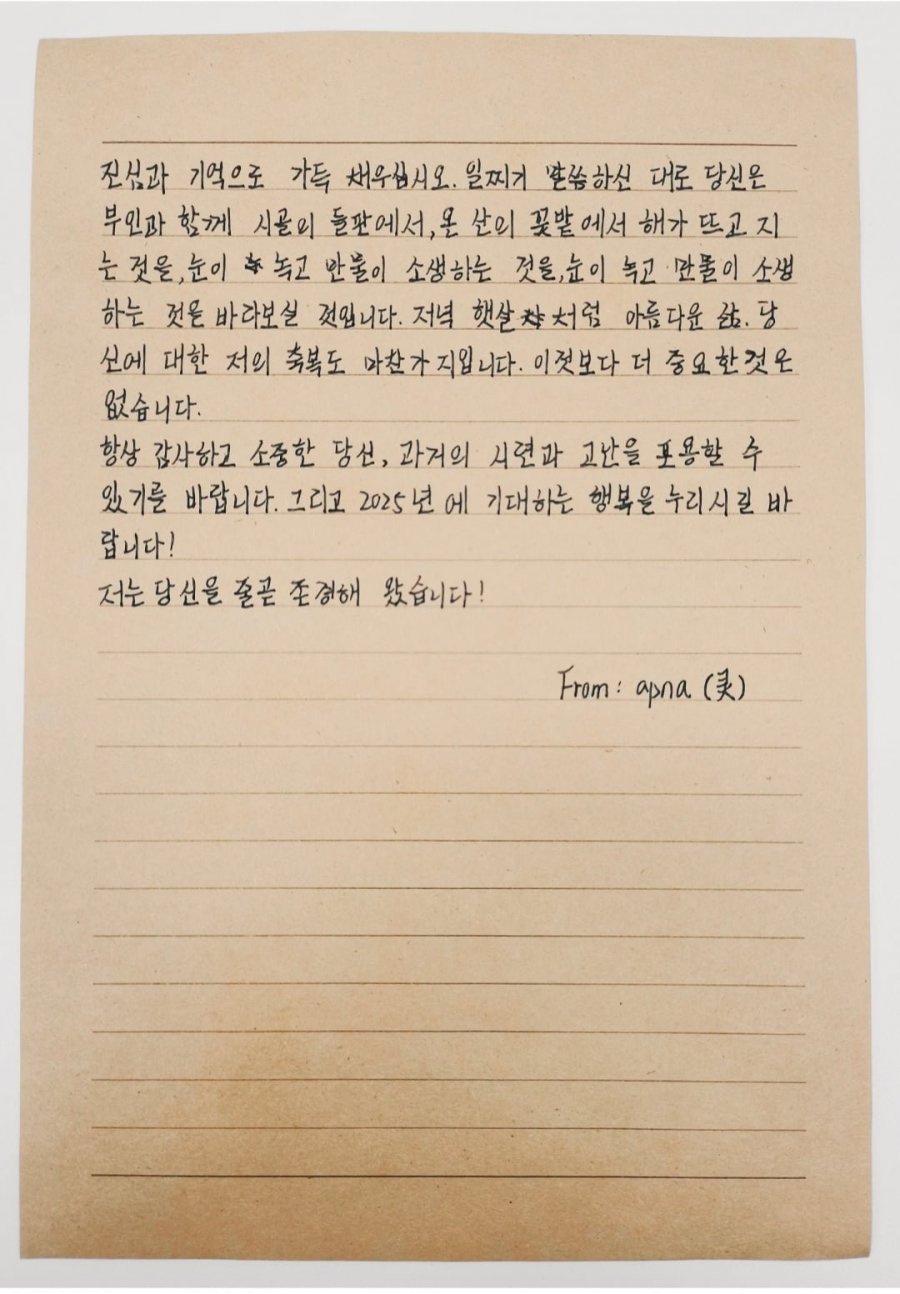 진심과 기억으로 가득 채우십시오. 일찌기 말씀하신 대로 당신은
부인과 함께 시골의 들판에서, 온 산의 꽃밭에서 해가 뜨고 지
는 것을, 눈이 녹고 만물이 소생하는 것을, 눈이 녹고 만물이 소생
하는 것을 바라보실 것입니다. 저녁 햇살처럼 아름다운 삶. 당
신에 대한 저의 축복도 마찬가지입니다. 이것보다 더 중요한것은
없습니다.
항상 감사하고 소중한 당신, 과거의 시련과 고난을 포용할 수
있기를 바랍니다. 그리고 2025년에 기대하는 행복을 누리시길 바
랍니다!
저는 당신을 줄곧 존경해 왔습니다!
From: apna (灵)